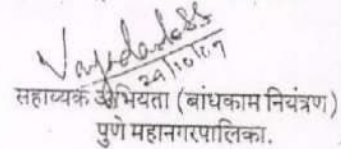 24/10/07
सहाय्यक अभियता (बांधकाम नियंत्रण)
पुणे महानगरपालिका.